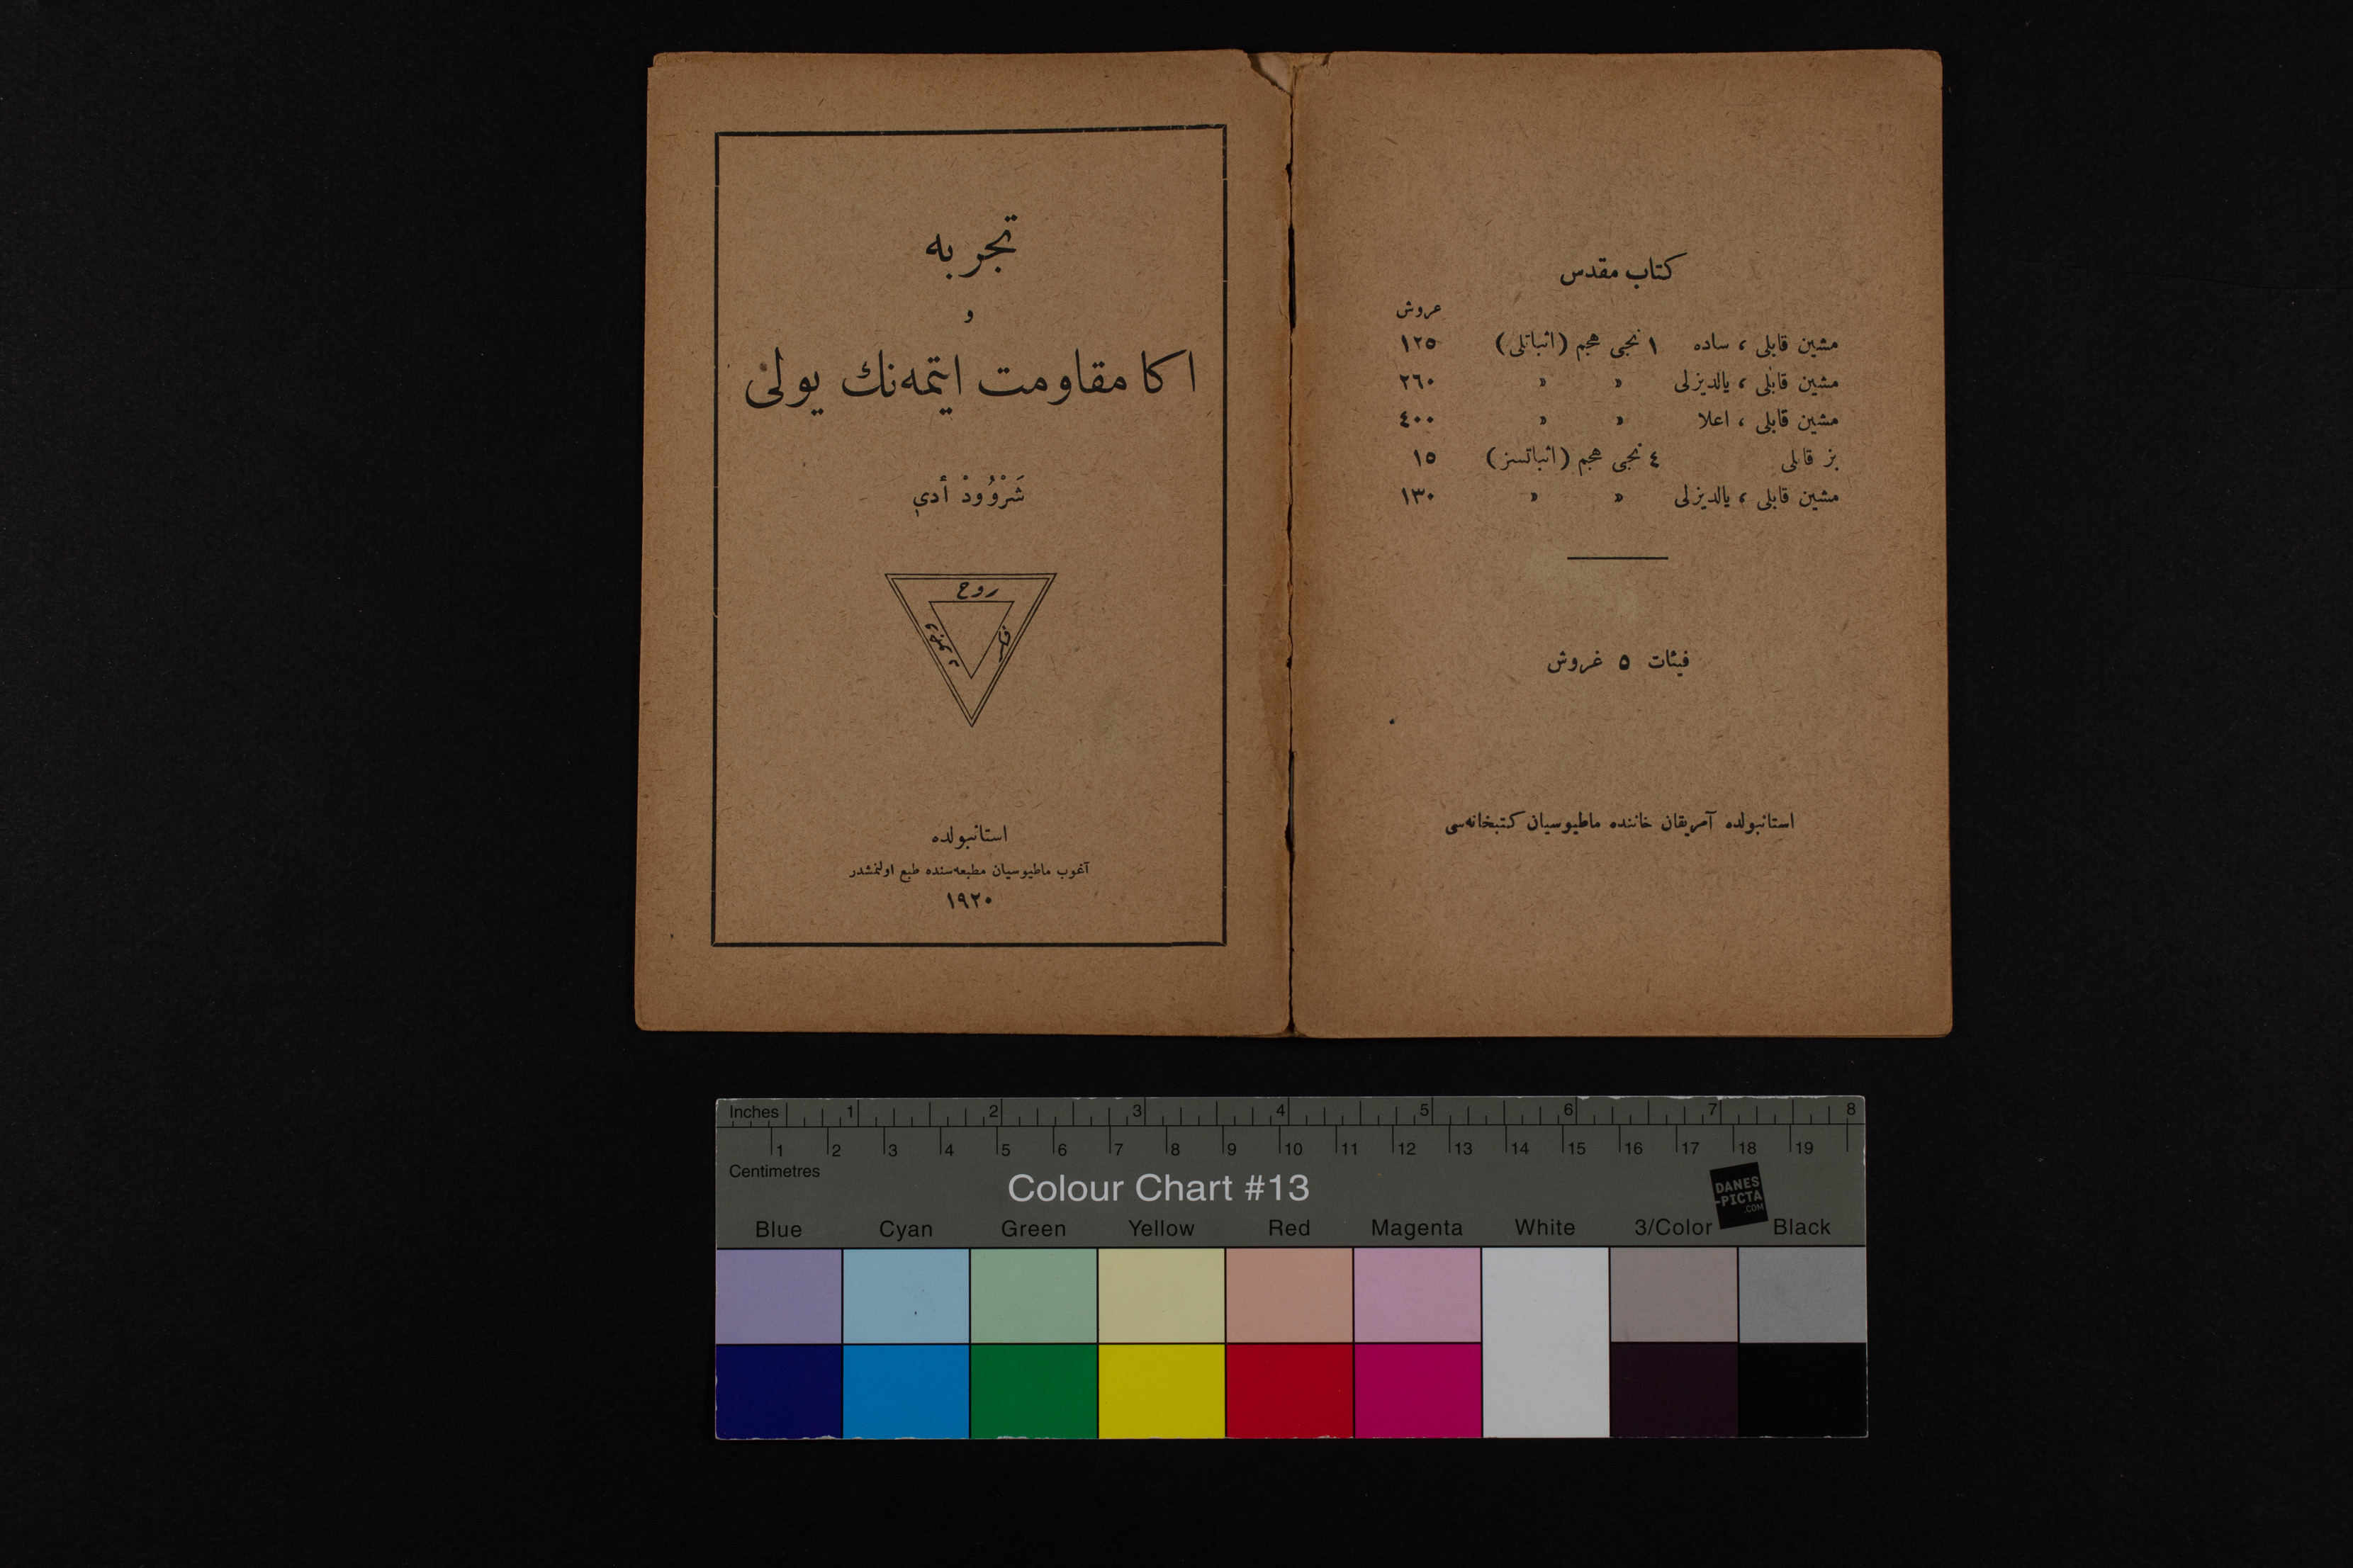 كتاب مقدس
غروش
مشين قابلى ، ساده ١ نجى حجم (اثباتلى) ١٢٥
مشين قابلى ، يالديزلى » » ٢٦٠
مشين قابلى ، اعلا » » ٤٠٠
بز قابلى ٤ نجى حجم (اثباتسز) ١٥
مشين قابلى ، يالديزلى » » ١٣٠
فيئات ٥ غروش
استانبولده آمريقان خاننده ماطيوسيان كتبخانه‌سى
تجربه
و
اكا مقاومت ايتمه‌نك يولى
شَرْوُودْ أدي
روح
فكر
وجود
استانبولده
آغوب ماطيوسيان مطبعه‌سنده طبع اولنمشدر
١٩٢٠
Inches 1 2 3 4 5 6 7 8
1 2 3 4 5 6 7 8 9 10 11 12 13 14 15 16 17 18 19
Centimetres
Colour Chart #13
DANES
-PICTA
.COM
Blue Cyan Green Yellow Red Magenta White 3/Color Black